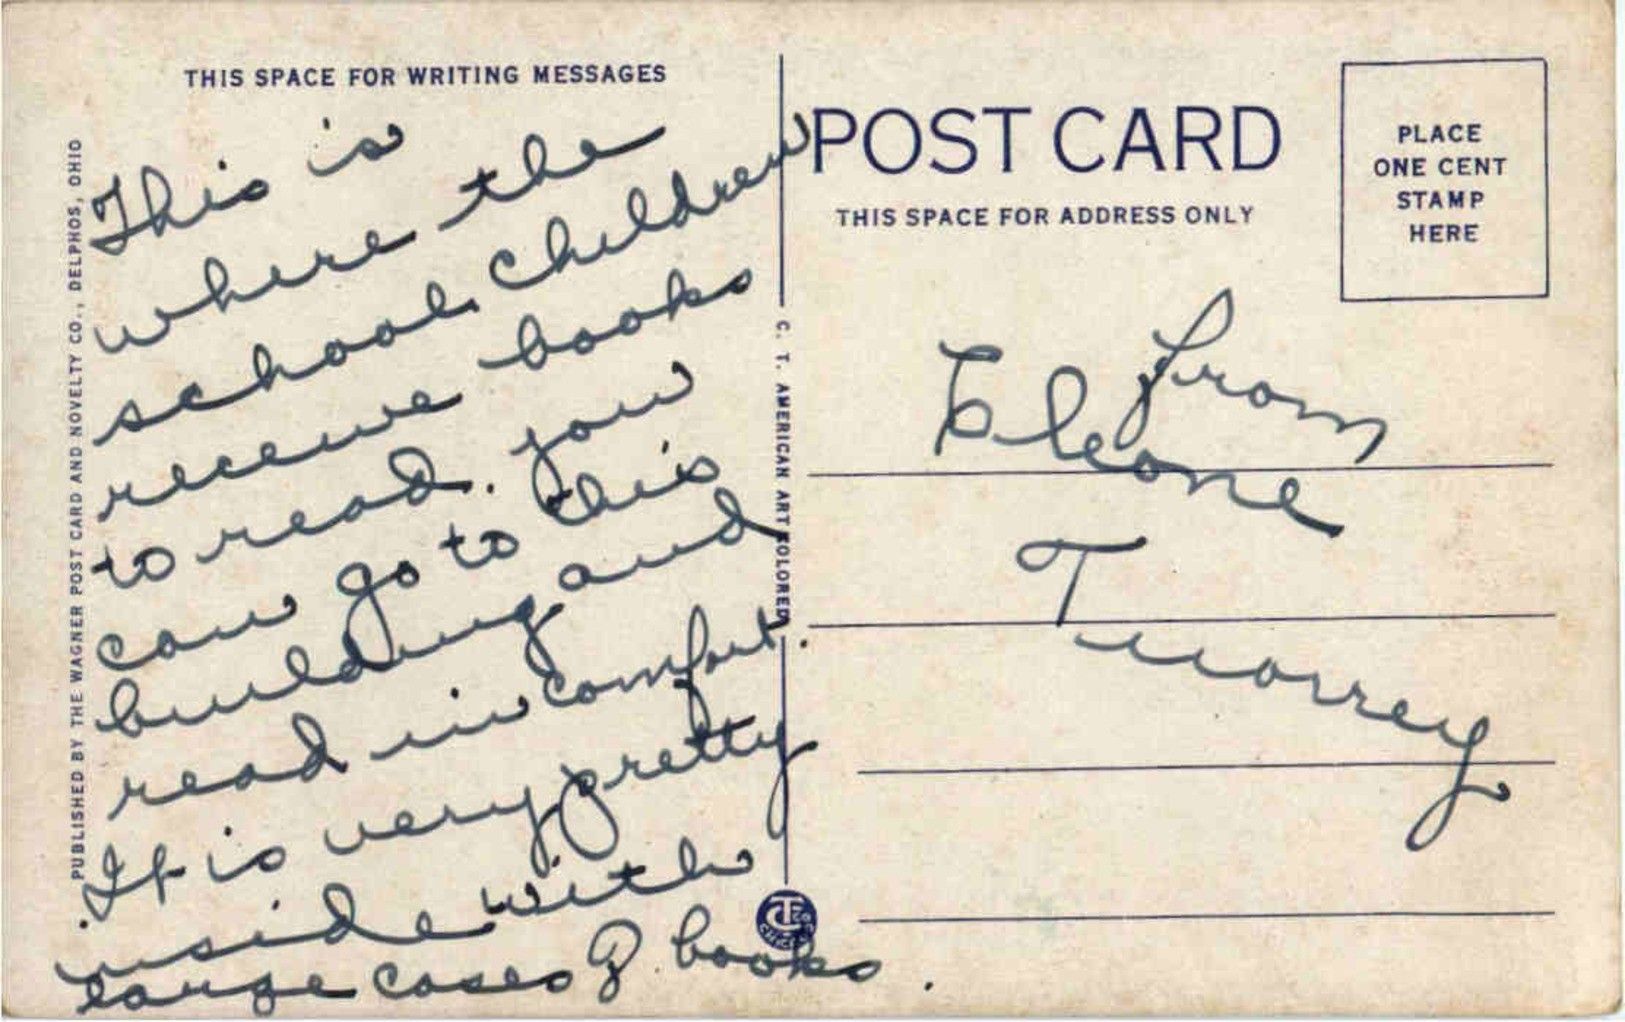 THIS SPACE FOR WRITING MESSAGES
This is
where the
school children
receive books
to read. you
can go to this
building and
read in comfort.
It is very pretty
inside with
large cases of books.
PUBLISHED BY THE WAGNER POST CARD AND NOVELTY CO., DELPHOS, OHIO
C. T. AMERICAN ART COLORED
POST CARD
THIS SPACE FOR ADDRESS ONLY
PLACE
ONE CENT
STAMP
HERE
from
Eleone